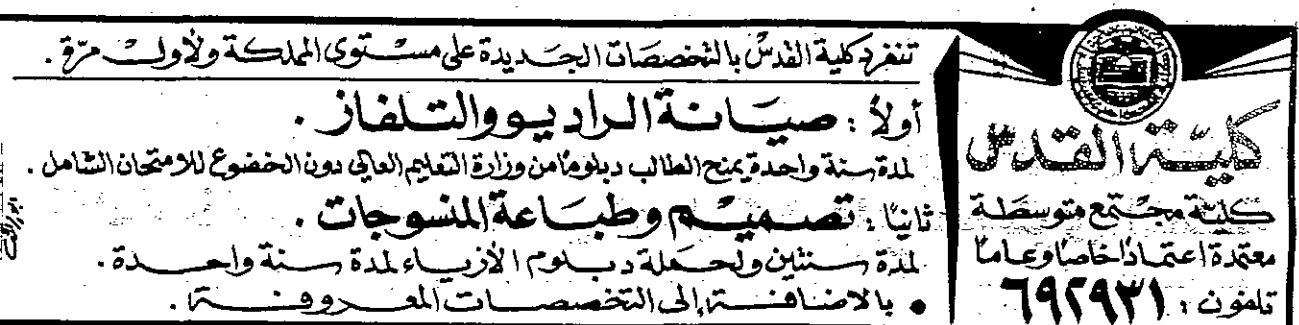 كليّة القدس
كلية مجتمع متوسطة
معتمدة اعتمادًا خاصًا وعامًا
تلفون : ٦٩٢٩٣١
تنفرد كلية القدس بالتخصصات الجديدة على مستوى المملكة ولأول مرّة .
أولاً : صيانة الراديو والتلفاز .
لمدة سنة واحدة يمنح الطالب دبلومًا من وزارة التعليم العالي دون الخضوع للامتحان الشامل .
ثانيًا : تصميم وطباعة المنسوجات .
لمدة سنتين ولحملة دبلوم الأزياء لمدة سنة واحدة .
• بالاضافة إلى التخصصات المعروفة .